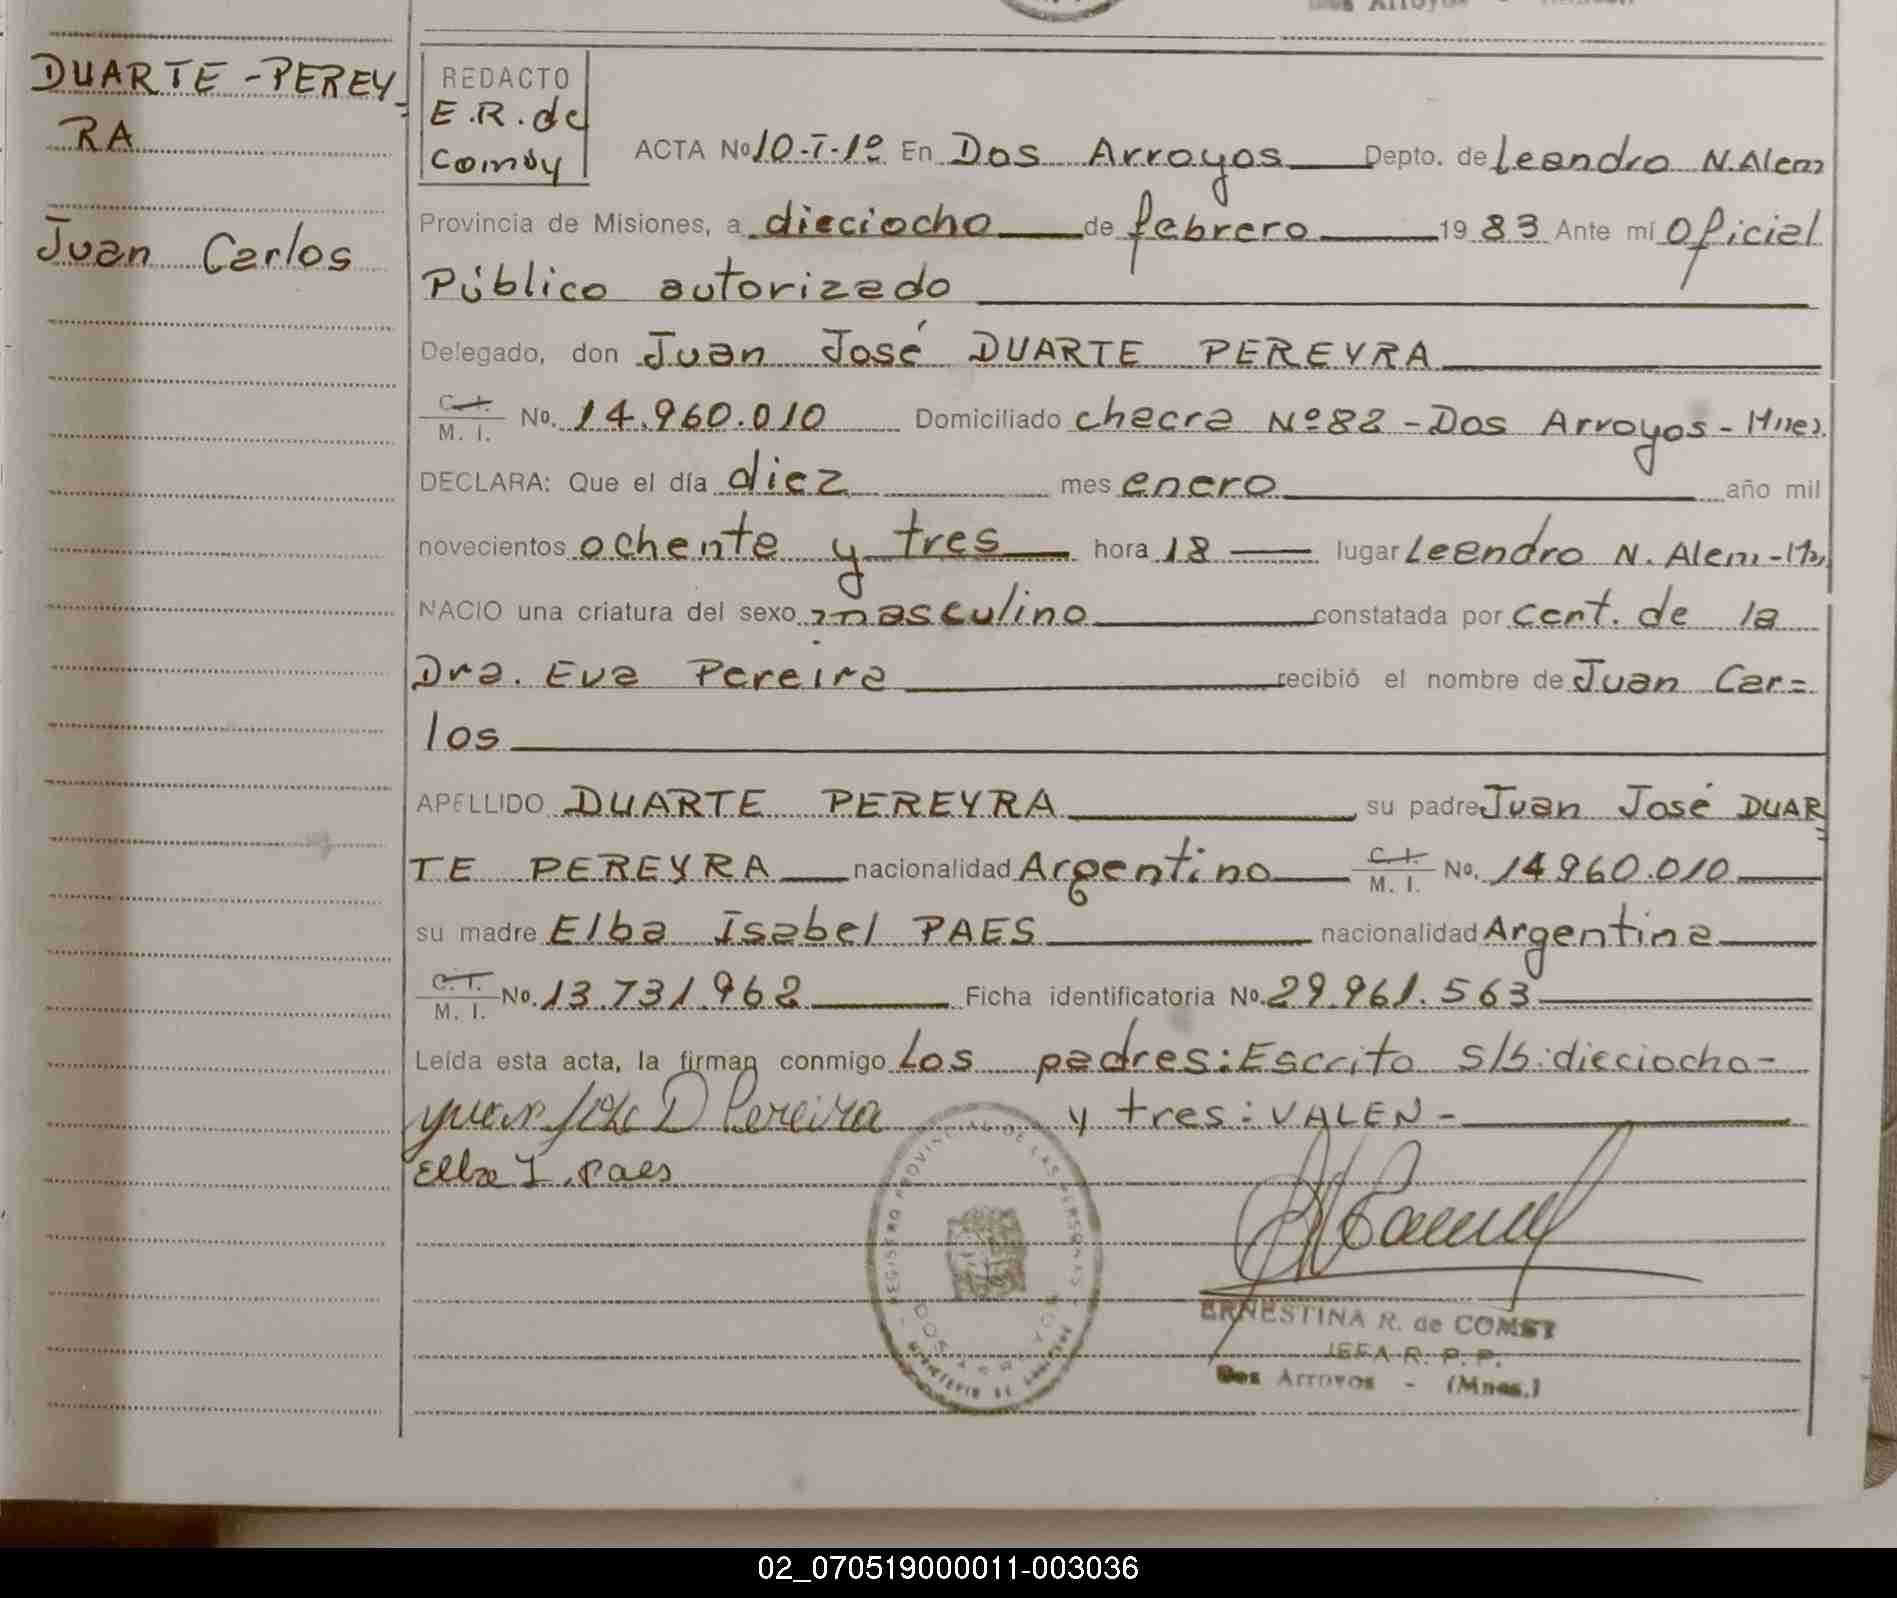 DUARTE-PEREY
RA
Juan Carlos
REDACTO
E.R. de
Comsy
ACTA No 10-I-1º En Dos Arroyos Depto. de Leandro N. Alem
Provincia de Misiones, a dieciocho de febrero 1983 Ante mí Oficial
Público autorizado
Delegado, don Juan José DUARTE PEREYRA
C. I.
M. I. No. 14.960.010 Domiciliado checra Nº 82 - Dos Arroyos - Mnes.
DECLARA: Que el día diez mes enero año mil
novecientos ochenta y tres hora 18 lugar Leandro N. Alem -
NACIO una criatura del sexo masculino constatada por cert. de la
Dra. Eva Pereira recibió el nombre de Juan Car=
los
APELLIDO DUARTE PEREYRA su padre Juan José DUAR
TE PEREYRA nacionalidad Argentino C. I.
M. I. No. 14.960.010
su madre Elba Isabel PAES nacionalidad Argentina
C. I.
M. I. No. 13.731.962 Ficha identificatoria No. 29.961.563
Leída esta acta, la firman conmigo Los padres: Escrito s/b: dieciocho-
Juan Jose D Pereira y tres: VALEN-
Elba I. Paes
REGISTRO PROVINCIAL DE LAS PERSONAS
DOS ARROYOS
ERNESTINA R. de COMSY
JEFA R. P. P.
Dos Arroyos - (Mnes.)
02_070519000011-003036